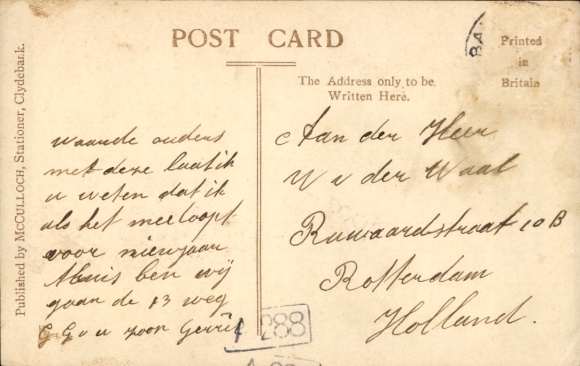 POST CARD
BA
Printed
in
Britain
The Address only to be
Written Here.
Published by McCULLOCH, Stationer, Clydebank.
waarde ouders
met deze laat ik
u weten dat ik
als het meeloopt
voor nieuwjaar
thuis ben wij
gaan de 13 weg
GG u zoon Gerrit
Aan der Heer
W v der Waal
Ruwaardstraat 10B
Rotterdam
Holland.
288